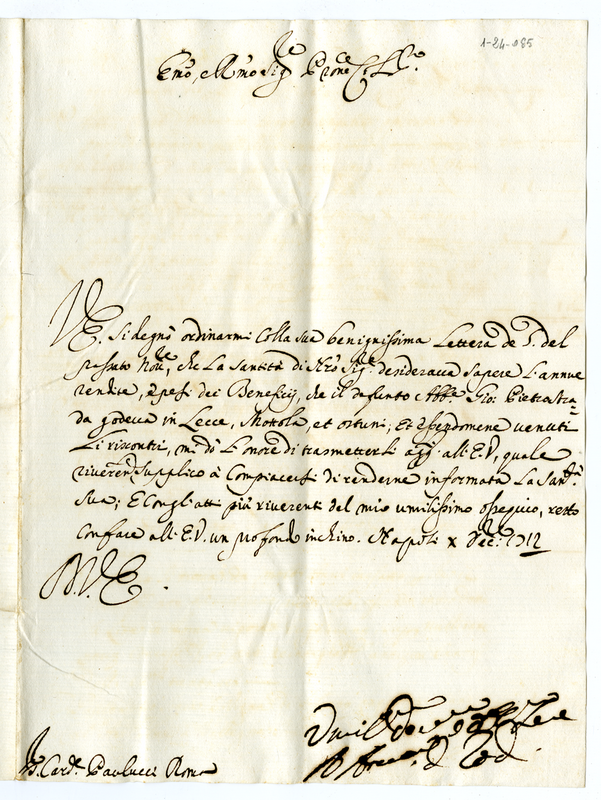 1-24-085
Em̃o, e Rm̃o Sig.re Prone Col.mo
V.E. si degnò ordinarmi colla sua benignissima lettera de 5. del
passato Nov.e, che la Santità di Nr̃o Sig.re desiderava sapere l'annue
rendite, e pesi dei Beneficij, che il defunto Abb.e Gio: Pietra Stra-
da godeva in Lecce, Mottola, et Ostuni; Et essendomene venuti
li riscontri, mi dò l'onore di trasmetterli agg.ti all'E.V., quale
riverent.e supplico à compiacersi di renderne informata la San.tà
Sua; E con gli atti più riverenti del mio umilissimo ossequio, resto
con fare all'E.V. un profondo inchino. Napoli x Dec.e 1712
Di V.E.
Umill.mo
S.r Card.e Paulucci Roma